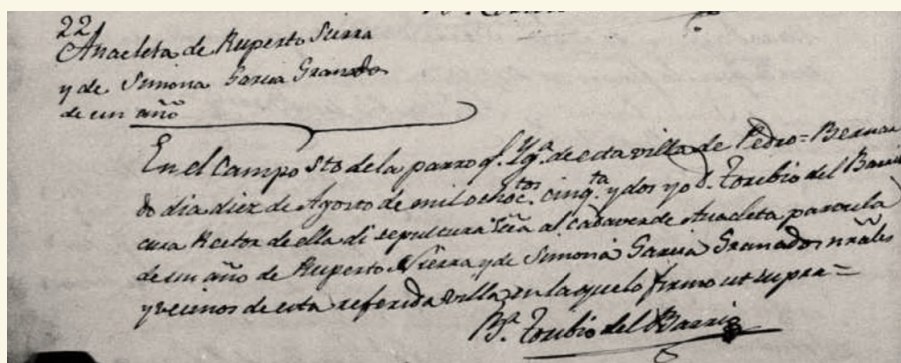 22
Anacleta de Ruperto Sierra
y de Simona Garcia Granados
de un año
En el Campo Sto de la parroql Yga. de esta villa de Pedro=Bernar
do dia diez de Agosto de mil ochoctos. cinqta. y dos yo D. Toribio del Barrio
cura Rector de ella di sepultura al cadaver de Anacleta parvula
de un año de Ruperto Sierra y de Simona Garcia Granados nrales
y vecinos de esta referida villa, en la que lo firmo ut supra=
Br. Toribio del Barrio